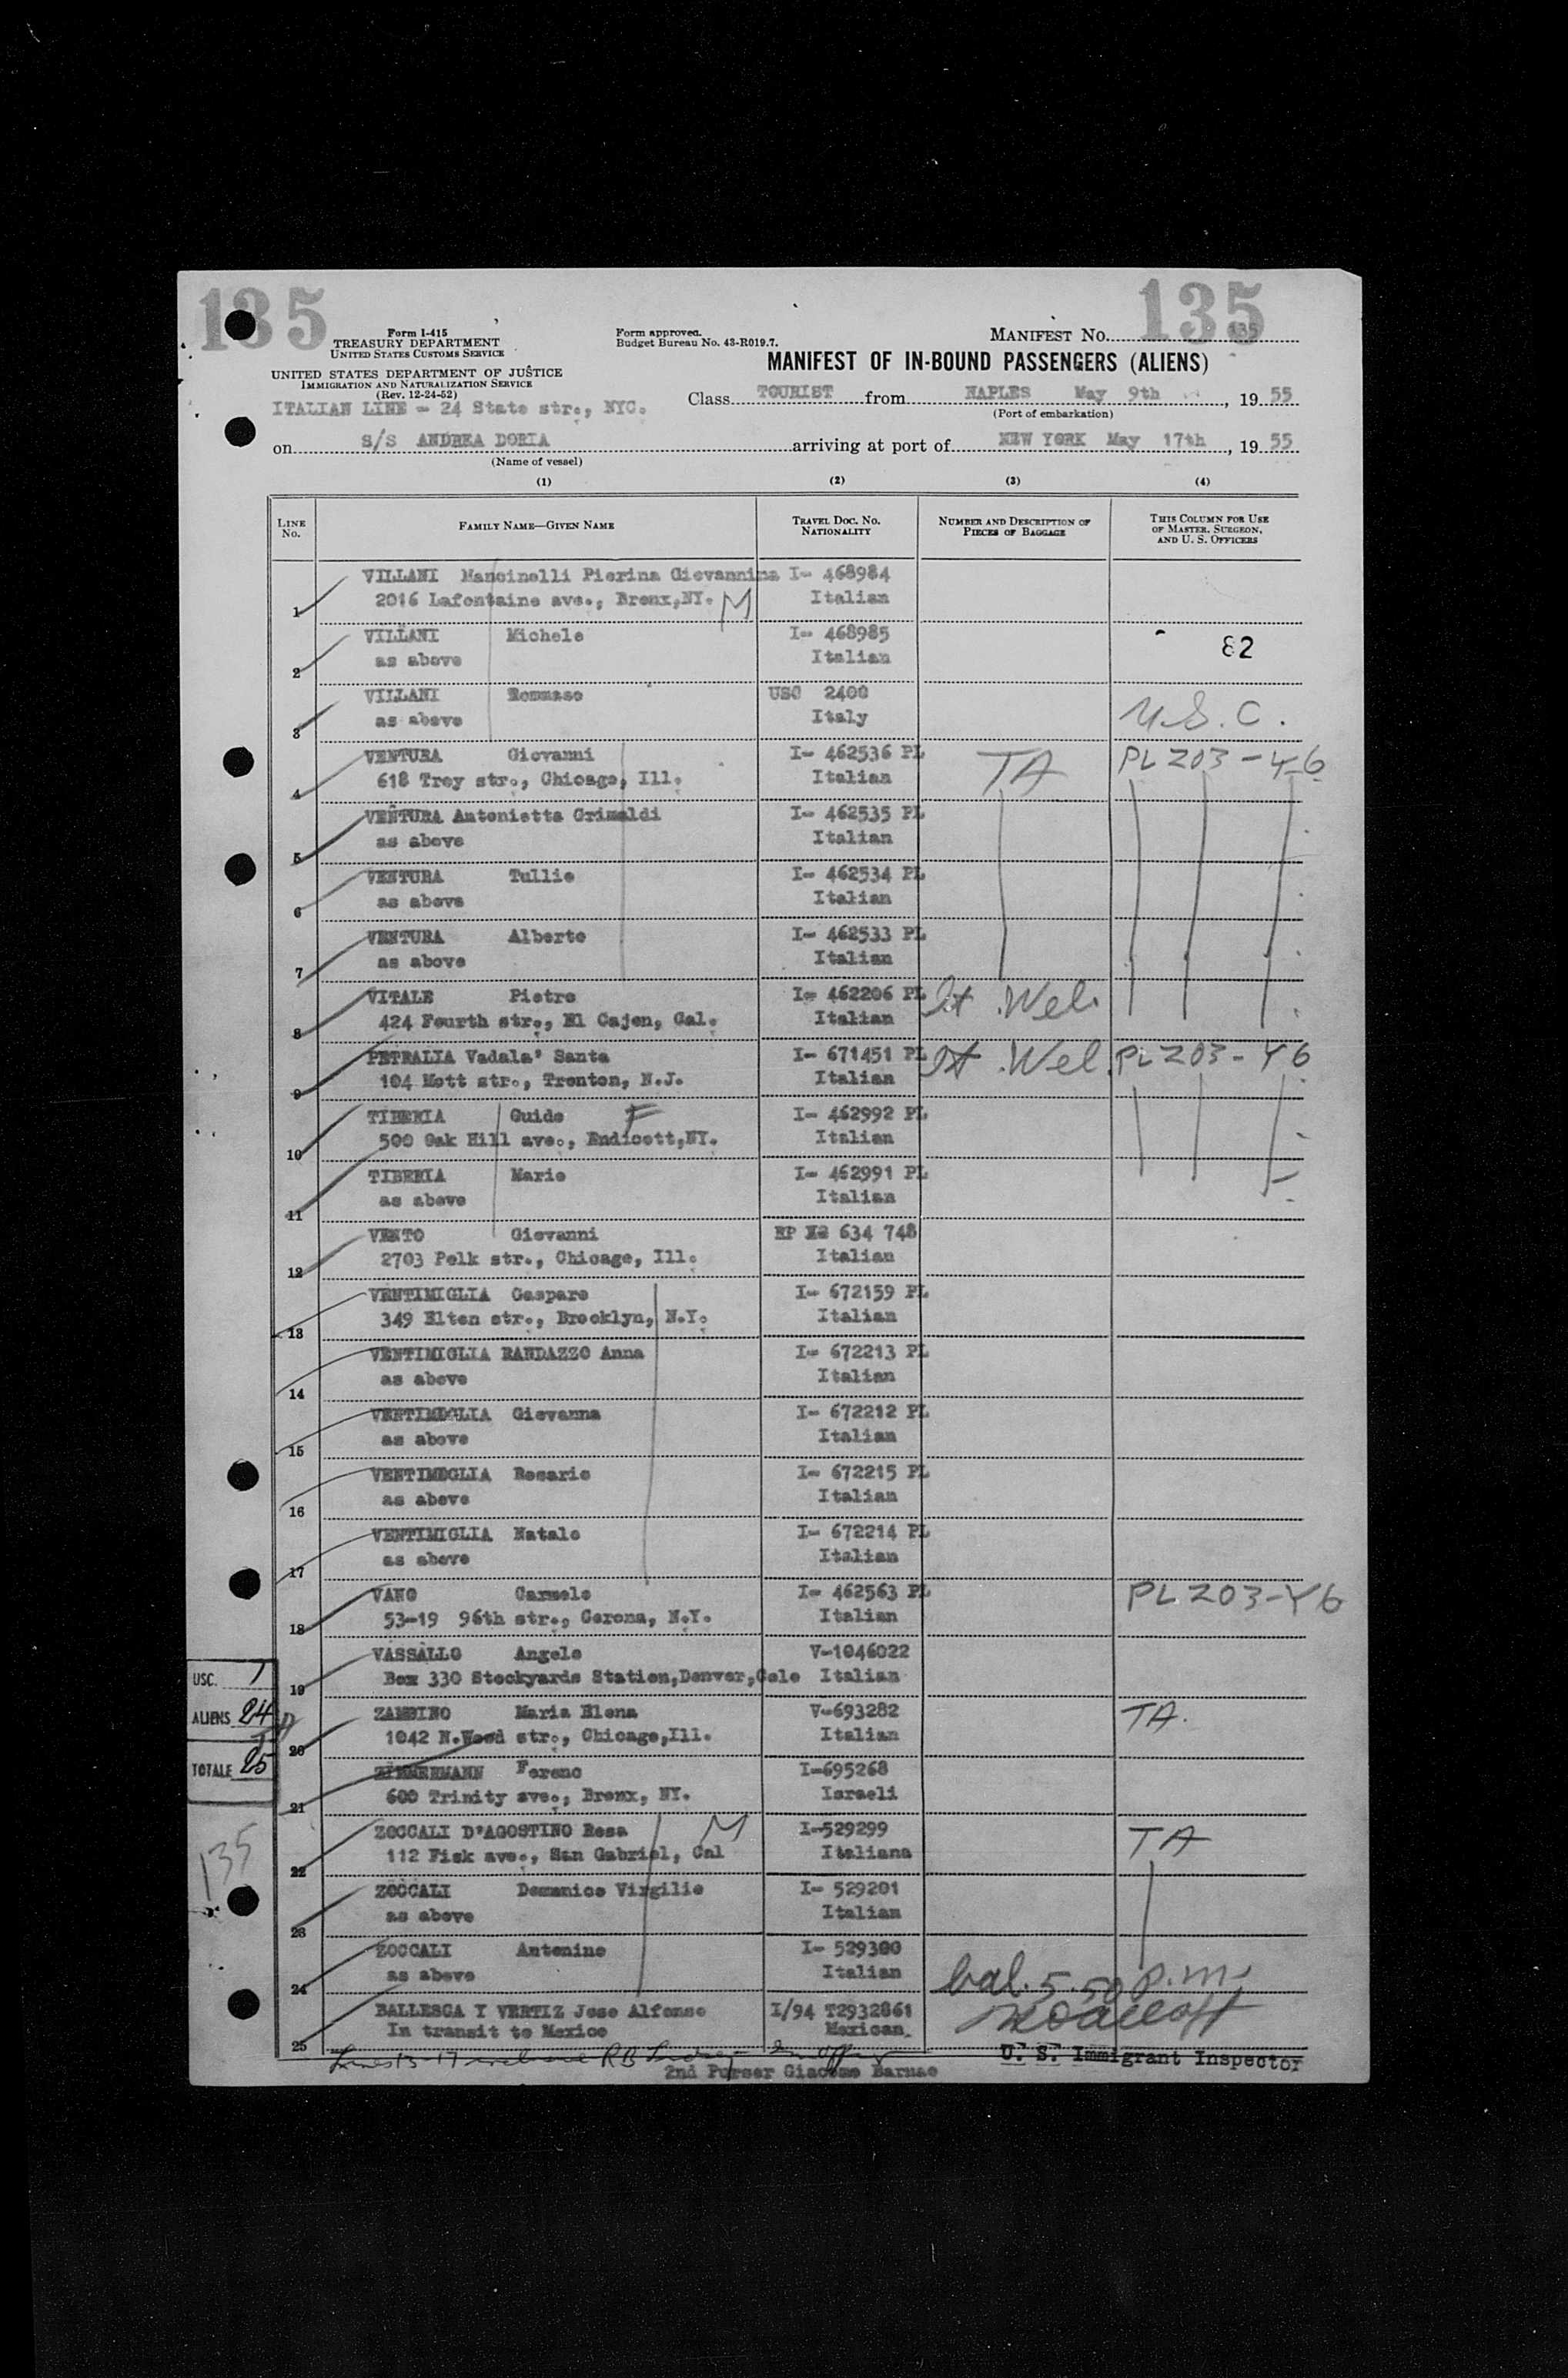 135 135
Form I-415
TREASURY DEPARTMENT
UNITED STATES CUSTOMS SERVICE
Form approved.
Budget Bureau No. 43-R019.7.
MANIFEST NO. 135
MANIFEST OF IN-BOUND PASSENGERS (ALIENS)
UNITED STATES DEPARTMENT OF JUSTICE
IMMIGRATION AND NATURALIZATION SERVICE
(Rev. 12-24-52)
ITALIAN LINE - 24 State str., NYC.
Class TOURIST from NAPLES May 9th, 19 55
(Port of embarkation)
on S/S ANDREA DORIA arriving at port of NEW YORK May 17th, 19 55
(Name of vessel)
(1) (2) (3) (4)
LINE NO.
FAMILY NAME—GIVEN NAME
TRAVEL DOC. NO. NATIONALITY
NUMBER AND DESCRIPTION OF PIECES OF BAGGAGE
THIS COLUMN FOR USE OF MASTER, SURGEON, AND U. S. OFFICERS
VILLANI Mancinelli Pierina Giovannina I- 468984
1 2016 Lafontaine ave., Bronx,NY. M Italian
VILLANI Michele I- 468985 82
2 as above Italian
VILLANI Tommaso USC 2400 U.S.C.
3 as above Italy
VENTURA Giovanni I- 462536 PL TA PL 203-Y6
4 618 Troy str., Chicago, Ill. Italian
VENTURA Antonietta Grimaldi I- 462535 PL
5 as above Italian
VENTURA Tullio I- 462534 PL
6 as above Italian
VENTURA Alberto I- 462533 PL
7 as above Italian
VITALE Pietro I- 462206 PL It. Wel.
8 424 Fourth str., El Cajon, Cal. Italian
PETRALIA Vadala' Santa I- 671451 PL It. Wel. PL 203-Y6
9 104 Mott str., Trenton, N.J. Italian
TIBERIA Guido F I- 462992 PL
10 500 Oak Hill ave., Endicott,NY. Italian
TIBERIA Mario I- 462991 PL
11 as above Italian
VENTO Giovanni RP No 634 748
12 2703 Polk str., Chicago, Ill. Italian
VENTIMIGLIA Gaspare I- 672159 PL
13 349 Elton str., Brooklyn, N.Y. Italian
VENTIMIGLIA RANDAZZO Anna I- 672213 PL
14 as above Italian
VENTIMIGLIA Giovanna I- 672212 PL
15 as above Italian
VENTIMIGLIA Rosario I- 672215 PL
16 as above Italian
VENTIMIGLIA Natale I- 672214 PL
17 as above Italian
VANO Carmelo I- 462563 PL PL 203-Y6
18 53-19 96th str., Corona, N.Y. Italian
VASSALLO Angelo V-1046022
19 Box 330 Stockyards Station,Denver,Colo Italian
ZAMBINO Maria Elena V-693282 TA.
20 1042 N.Wood str., Chicago,Ill. Italian
ZIMMERMANN Ferenc I-695268
21 600 Trinity ave., Bronx, NY. Israeli
ZOCCALI D'AGOSTINO Rosa M I-529299 TA
22 112 Fisk ave., San Gabriel, Cal Italiana
ZOCCALI Domenico Virgilio I- 529201
23 as above Italian
ZOCCALI Antonino I- 529300
24 as above Italian
BALLESCA Y VERTIZ Jose Alfonso I/94 T2932861
25 In transit to Mexico Mexican.
USC. 1
ALIENS 24
TOTALE 25
135
5.50 p.m.
Lines 13-17
U. S. Immigrant Inspector
2nd Purser Giacomo Barnao